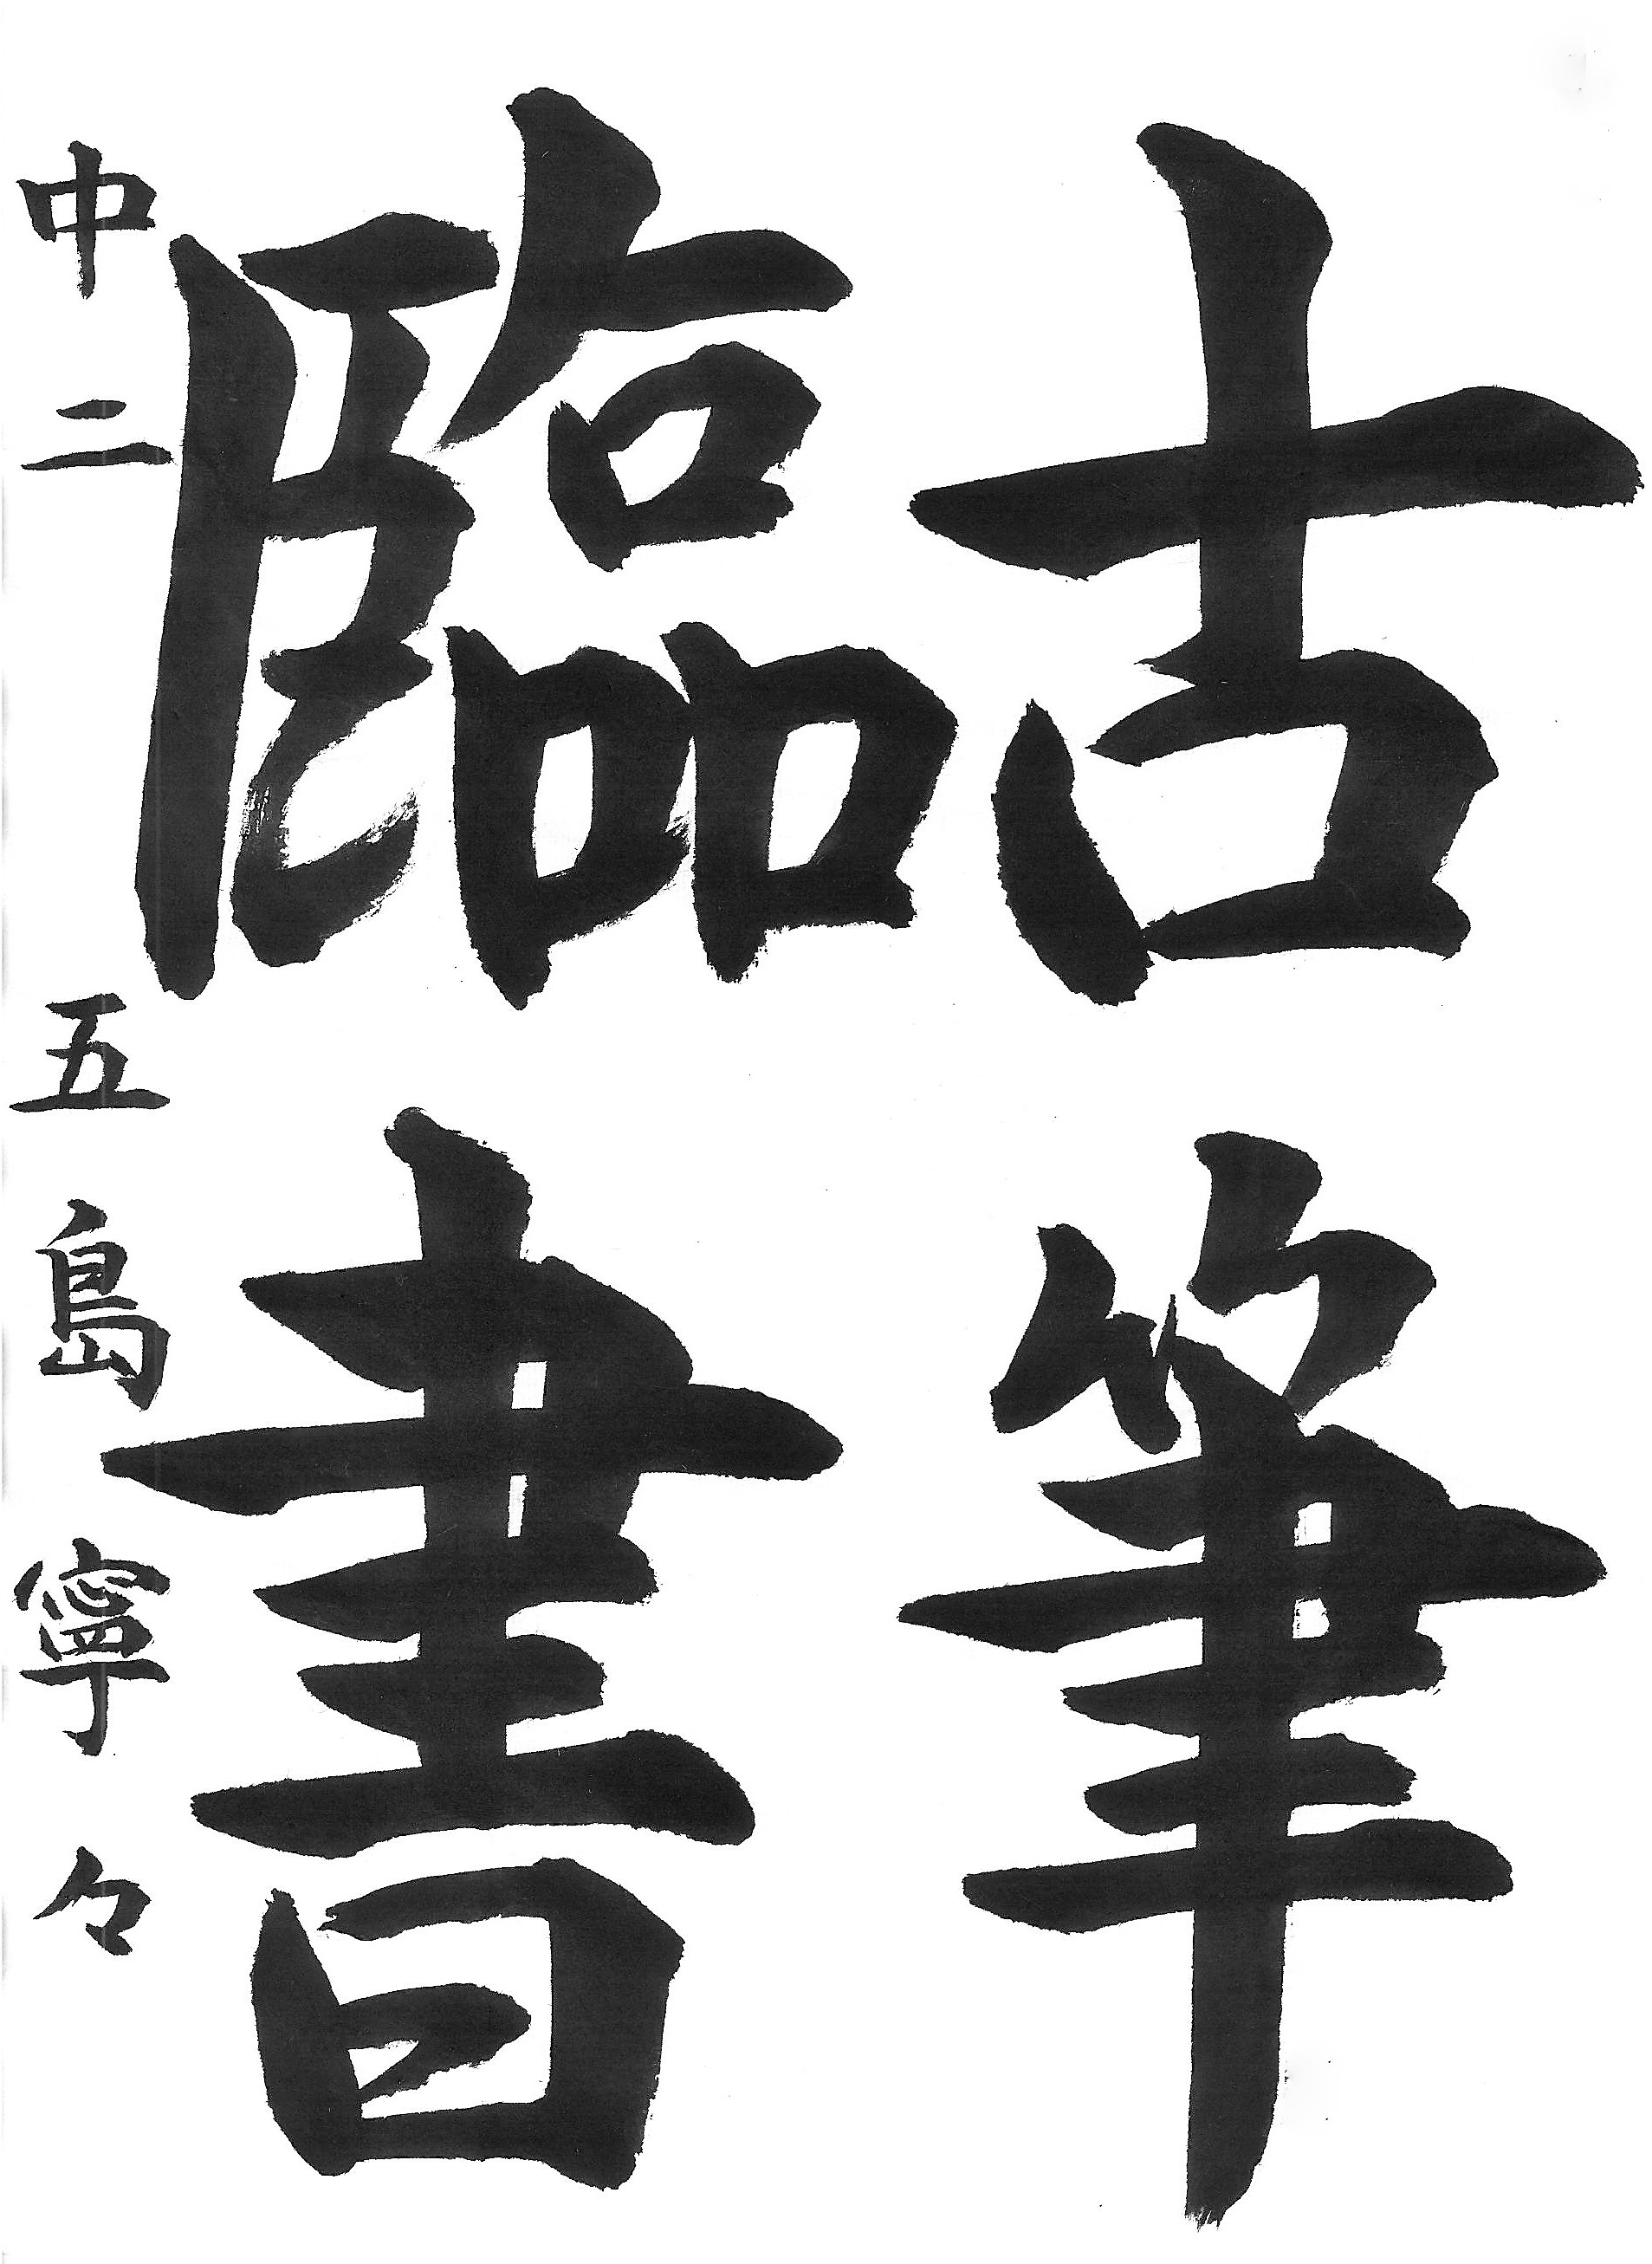 古筆
臨書
中二 五島寧々